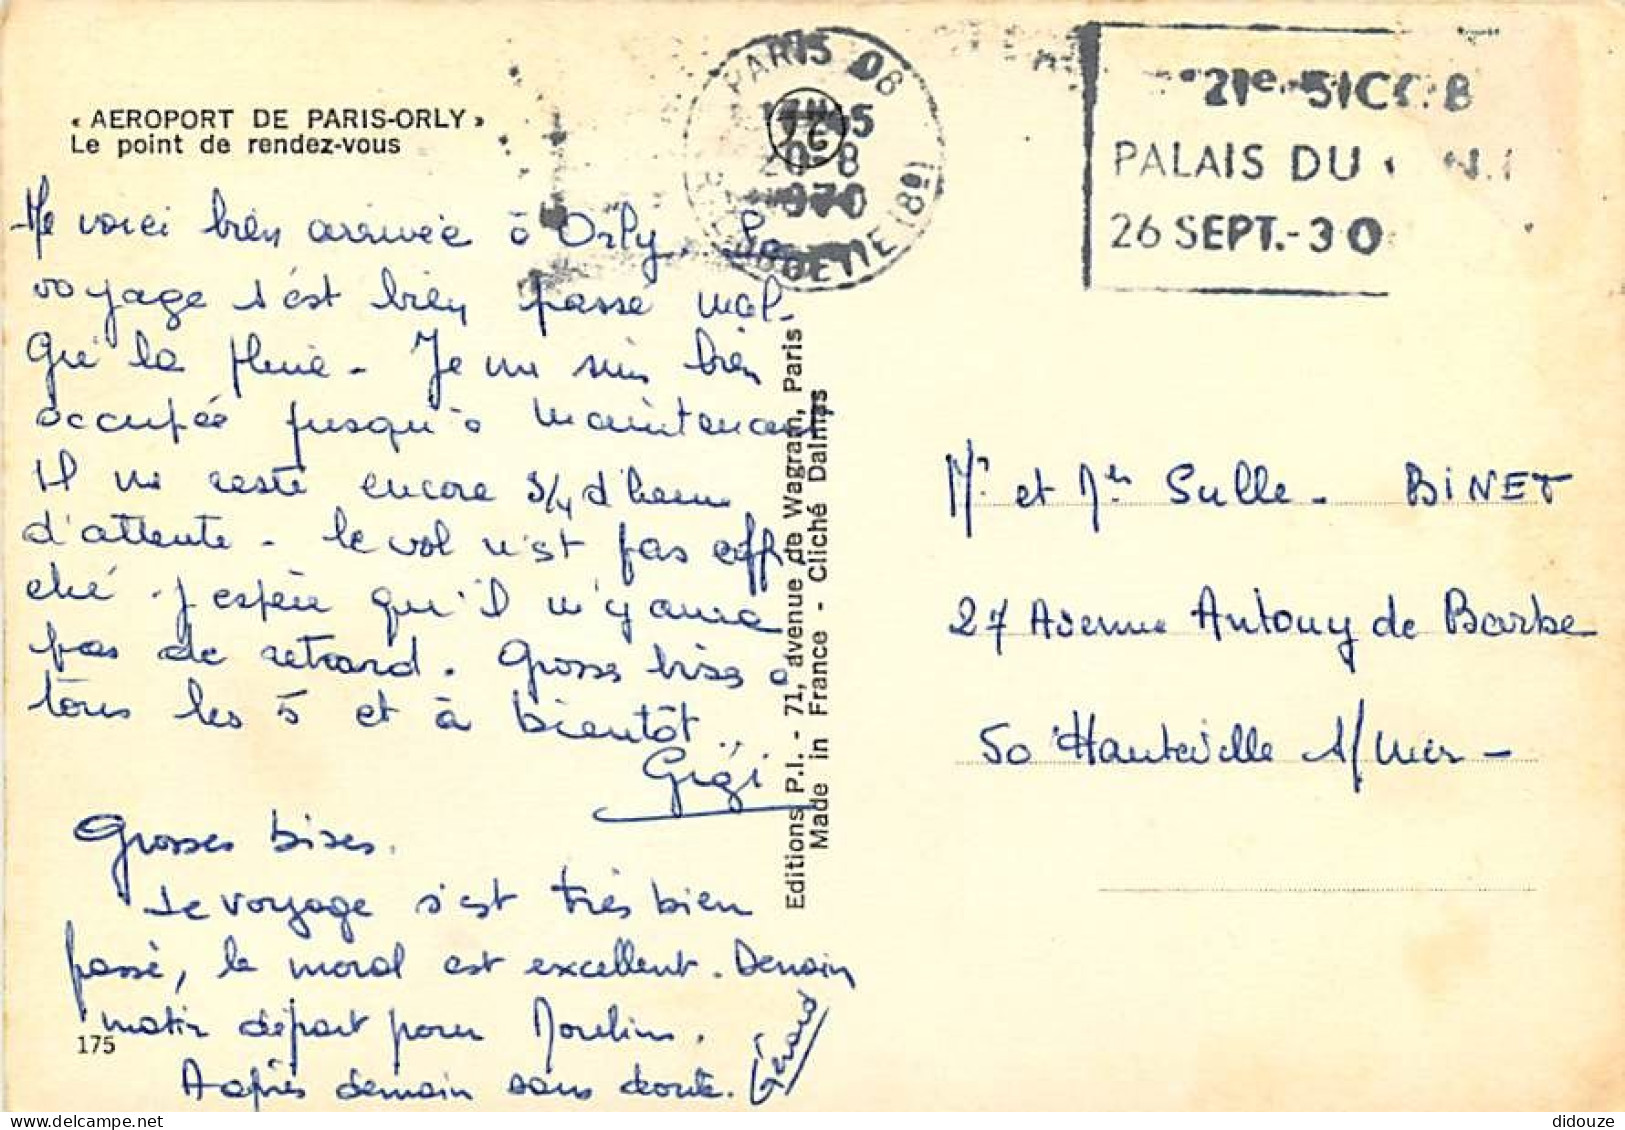 « AEROPORT DE PARIS-ORLY »
Le point de rendez-vous
Me voici bien arrivée à Orly. Le
voyage s'est bien passé mal-
gré la pluie - Je me suis bien
occupée jusqu'à maintenant
Il me reste encore 3/4 d'heure
d'attente - le vol n'est pas affi-
ché. J'espère qu'il n'y aura
pas de retard. Grosses bises à
tous les 5 et à bientôt..
Gigi
Grosses bises.
Le voyage s'est très bien
passé, le moral est excellent. Demain
matin départ pour Moulins.
Après demain sans doute.
Gérard
175
Editions P.I. - 71, avenue de Wagram, Paris
Made in France - Cliché Dalmas
PARIS 08
20-8
1970
BOETIE (8e)
21e SICOB
PALAIS DU
26 SEPT.-30
Mr et Mme Sulle - BINET
27 Avenue Antony de Barbe
50 Hauteville s/mer -
didouze